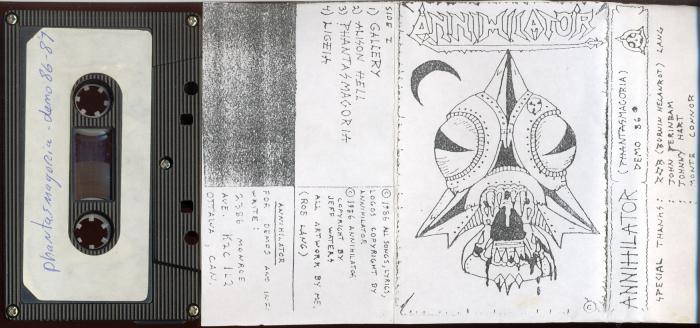 phantasmagoria - demo 86-87
SIDE I
1) GALLERY
2) ALISON HELL
3) PHANTASMAGORIA
4) LIGEIA
© 1986 ALL SONGS, LYRICS,
LOGOS COPYRIGHT BY
ANNIHILATOR
© 1986 ANNIHILATOR
COPYRIGHT BY
JEFF WATERS
ALL ARTWORK BY ME.
(ROB LANG)
ANNIHILATOR
FOR DEMOS AND INFO
WRITE:
2386 MONROE
AVE. K2C 1L2
OTTAWA, CAN.
ANNIHILATOR
©
ANNIHILATOR (PHANTASMAGORIA)
DEMO 86
SPECIAL THANKS: ROB (BURNIN HELANROT) LANG
: JOHN PERINBAM
: JOHNNY HART
: MONTE CONNOR